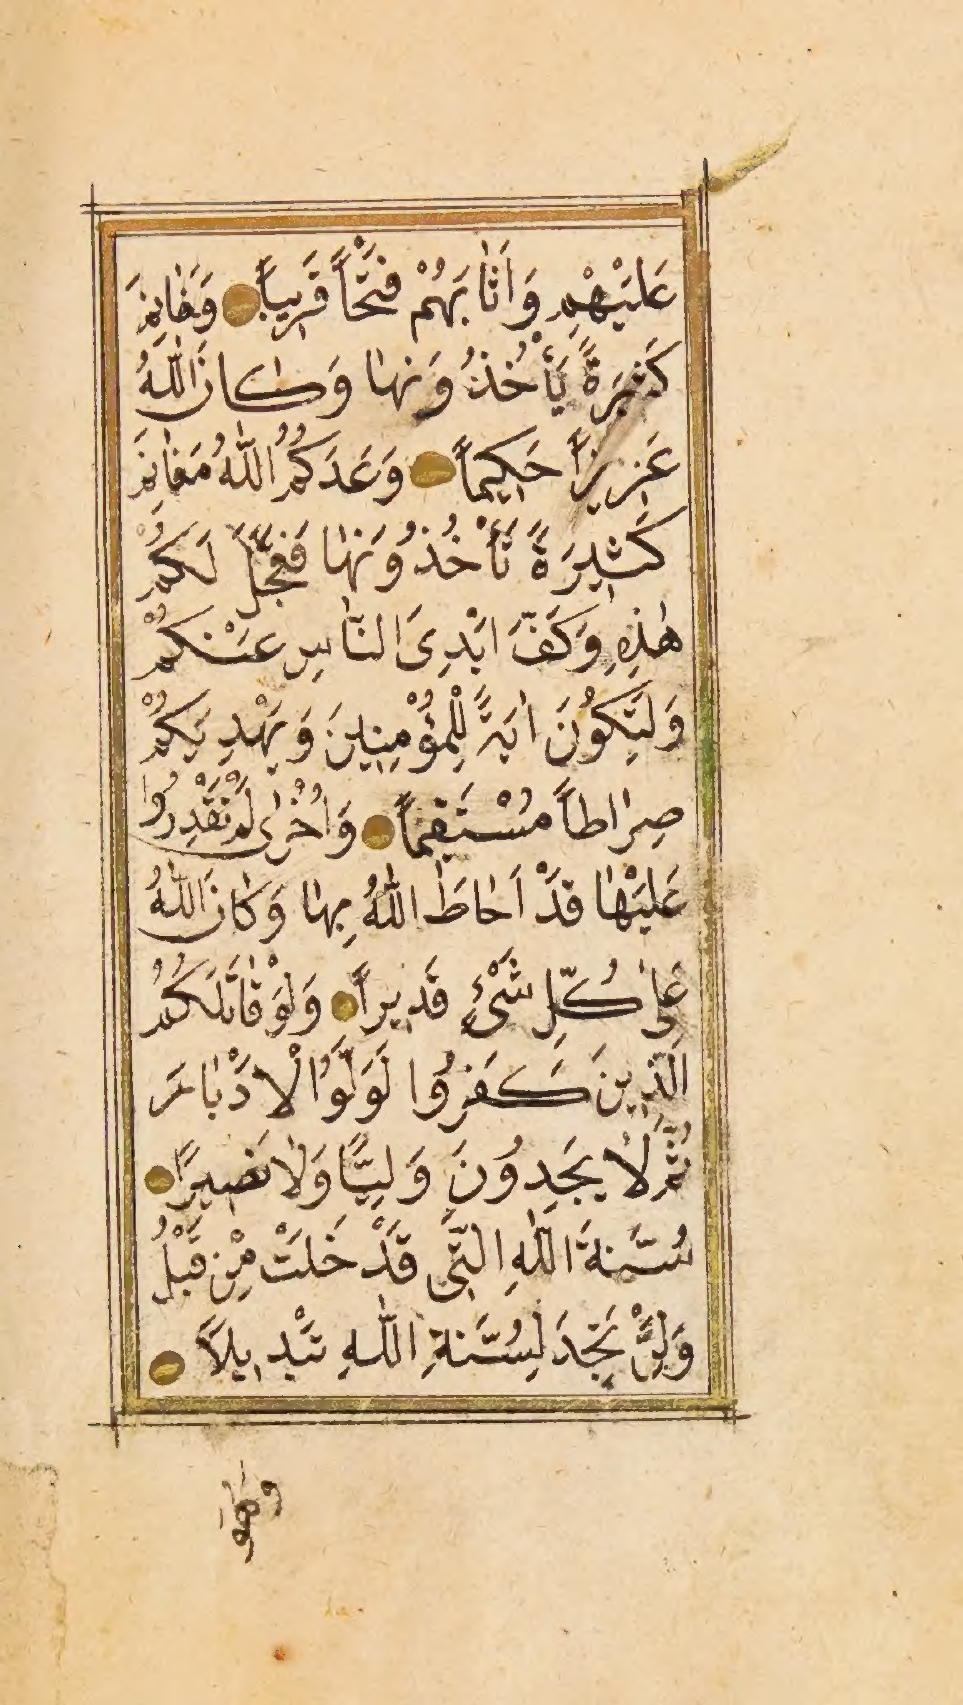 عَلَيْهِمْ وَاَثَابَهُمْ فَتْحًا قَرِيبًا وَمَغَانِمَ
كَثِيرَةً يَأْخُذُونَهَا وَكَانَ اللّٰهُ
عَزِيزًا حَكِيمًا وَعَدَكُمُ اللّٰهُ مَغَانِمَ
كَثِيرَةً تَأْخُذُونَهَا فَعَجَّلَ لَكُمْ
هٰذِهِ وَكَفَّ اَيْدِىَ النَّاسِ عَنْكُمْ
وَلِتَكُونَ اٰيَةً لِلْمُؤْمِنِينَ وَيَهْدِيَكُمْ
صِرَاطًا مُسْتَقِيمًا وَاُخْرٰى لَمْ تَقْدِرُوا
عَلَيْهَا قَدْ اَحَاطَ اللّٰهُ بِهَا وَكَانَ اللّٰهُ
عَلٰى كُلِّ شَىْءٍ قَدِيرًا وَلَوْ قَاتَلَكُمُ
الَّذِينَ كَفَرُوا لَوَلَّوُا الْاَدْبَارَ
ثُمَّ لَا يَجِدُونَ وَلِيًّا وَلَا نَصِيرًا
سُنَّةَ اللّٰهِ الَّتِى قَدْ خَلَتْ مِنْ قَبْلُ
وَلَنْ تَجِدَ لِسُنَّةِ اللّٰهِ تَبْدِيلًا
وَهُوَ